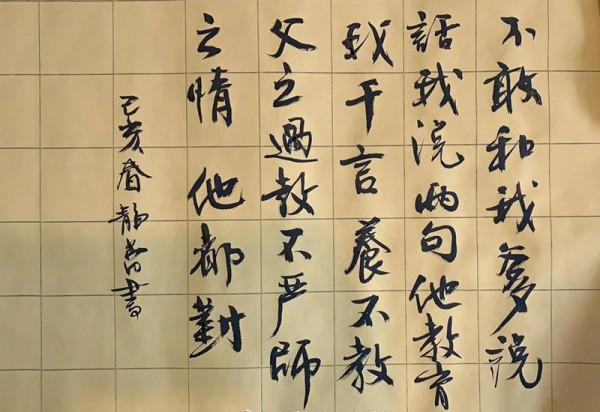 不敢和我爹说
話我说两句他教育
我千言養不教
父之過教不严師
之情 他都對
己亥春靜書